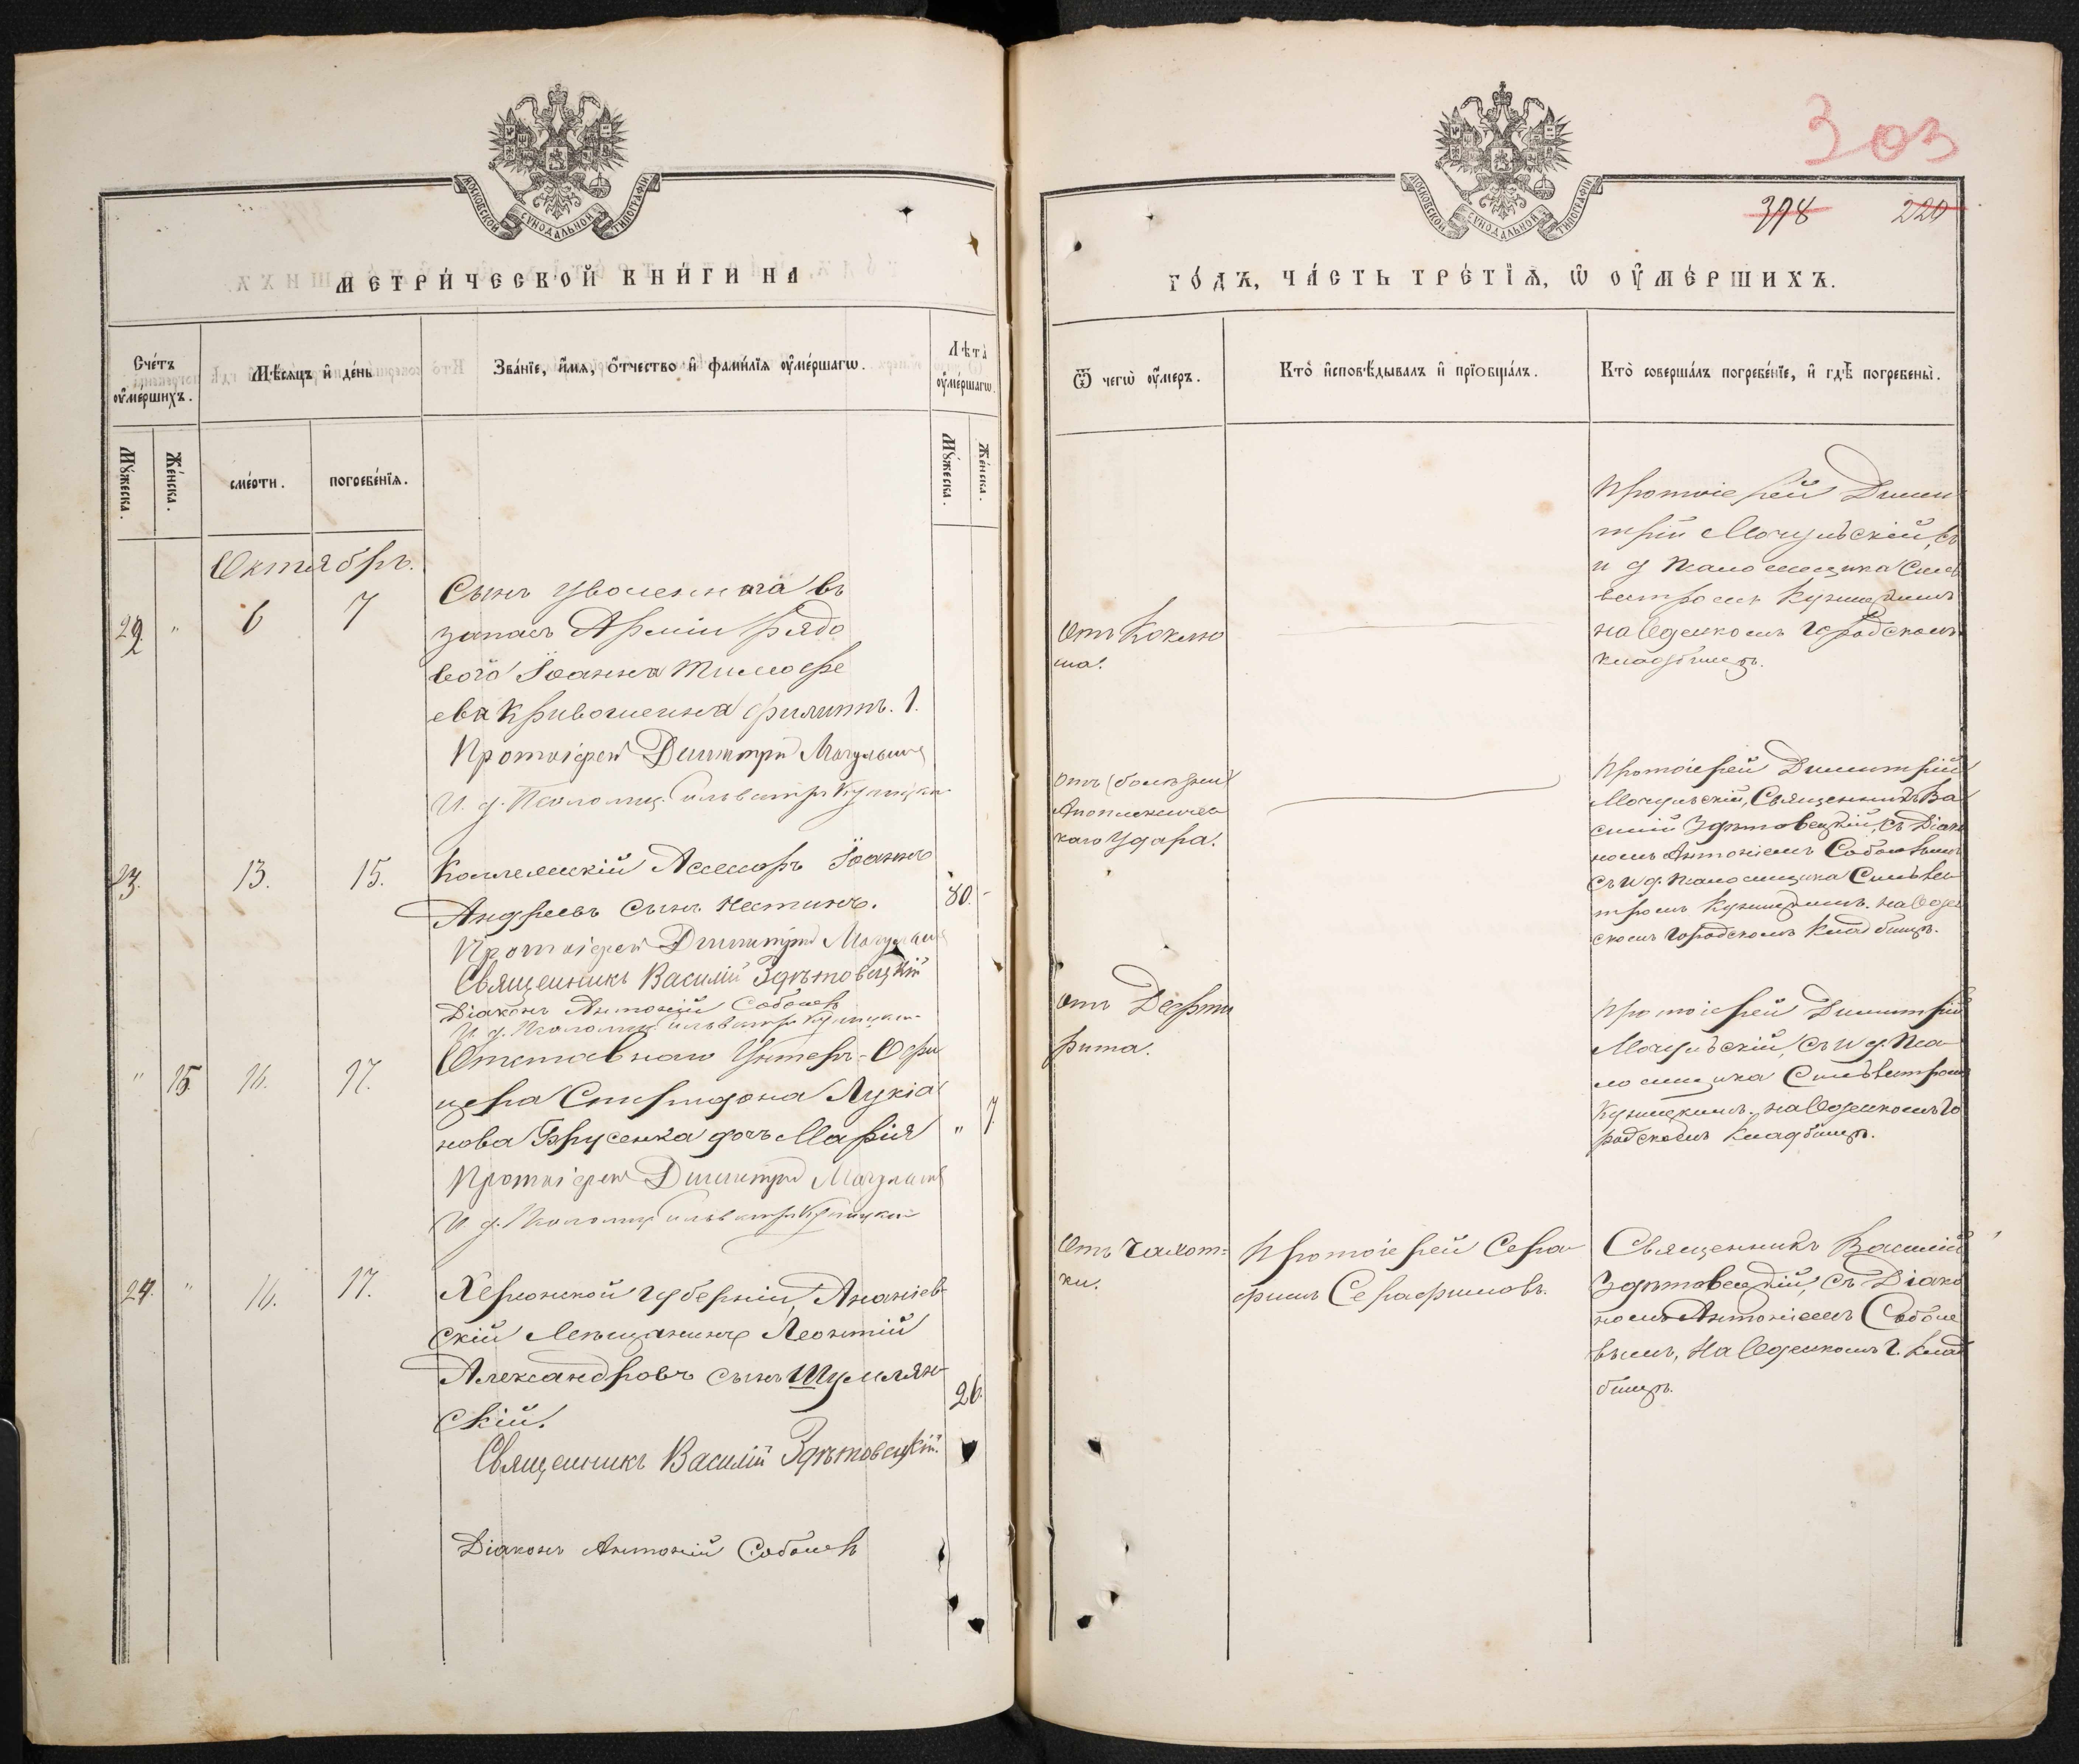 МОСКОВСКОЙ СѴНОДАЛЬНОЙ ТИПОГРАФІИ
МЕТРИ́ЧЕСКОЙ КНИ́ГИ НА
Сче́тъ ᲂу҆ме́ршихъ.
Мѣ́сяцъ и҆ де́нь
Зва́нїе, и҆́мя, ѻ҆́тчество и҆ фами́лїя ᲂу҆ме́ршагѡ.
Лѣта̀ ᲂу҆ме́ршагѡ.
Мꙋ́жеска.
Же́нска.
сме́рти.
погребе́нїя.
Мꙋ́жеска.
Же́нска.
Октябрь.
22 " 6 7
Сынъ уволеннаго въ
запасъ Арміи рядо
вого Іоанна Тимофе
ева Кривошеина Филиппъ. 1.
Протоіерей Димитрій Мочульскій
И. д. Псаломщ. Сильвестръ Куницкій
23. 13. 15.
Коллежскій Асессоръ Іоаннъ
Андреевъ сынъ Нестинъ.
80. -
Протоіерей Димитрій Мочульскій
Священникъ Василій Здѣтовецкій
Діаконъ Антоній Соболевъ
И. д. Псаломщ. Сильвестръ Куницкій
" 15. 16. 17.
Отставнаго Унтеръ-Офи
цера Спиридона Лукіа
нова Брусенка дочь Марія " 7.
Протоіерей Димитрій Мочульскій
И. д. Псаломщ. Сильвестръ Куницкій
24. " 16. 17.
Херсонской губерніи, Ананіев-
скій Мѣщанинъ Леонтій
Александровъ сынъ Шумлян-
скій.
26.
Священникъ Василій Здѣтовецкій.
Діаконъ Антоній Соболевъ
303
398 220
МОСКОВСКОЙ СѴНОДАЛЬНОЙ ТИПОГРАФІИ
ГО́ДЪ, ЧА́СТЬ ТРЕ́ТЇЯ, Ѡ҆ ОУ҆МЕ́РШИХЪ.
Ѿ чегѡ̀ ᲂу҆́меръ.
Кто̀ и҆сповѣ́дывалъ и҆ прїѻбща́лъ.
Кто̀ соверша́лъ погребе́нїе, и҆ гдѣ̀ погребены̀.
Отъ Коклю
ша.
Протоіерей Дими
трій Мочульскій, съ
и д Псаломщика Силь
вестромъ Куницкимъ
на Одесскомъ Городскомъ
кладбищѣ.
Отъ болѣзни
Апоплексичес
каго Удара.
Протоіерей Димитрій
Мочульскій, Священникъ Ва
силій Здѣтовецкій, съ Діако
номъ Антоніемъ Соболевымъ
съ и д. Псаломщика Сильве
стромъ Куницкимъ. на Одес
скомъ Городскомъ Кладбищѣ.
Отъ Дефте
рита.
Протоіерей Димитрій
Мочульскій, съ и д. Пса-
ломщика Сильвестромъ
Куницкимъ. на Одесскомъ Го
родскомъ Кладбищѣ.
Отъ Чахот-
ки.
Протоіерей Сера-
фимъ Серафимовъ.
Священникъ Василій
Здѣтовецкій, съ Діако
номъ Антоніемъ Соболе
вымъ, На Одесскомъ Г. Клад
бищѣ.